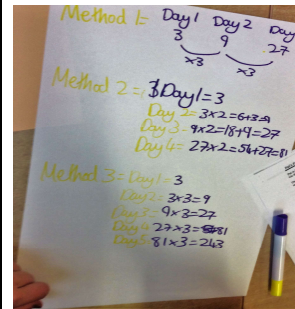 Method 1= Day 1 Day 2 Day
3 9 27
x3 x3
Method 2 = Day1=3
Day 2= 3x2=6+3=9
Day 3= 9x2=18+9=27
Day 4= 27x2=54+27=81
Method 3= Day1= 3
Day2= 3x3=9
Day3= 9x3=27
Day4= 27x3=81
Day5= 81x3=243